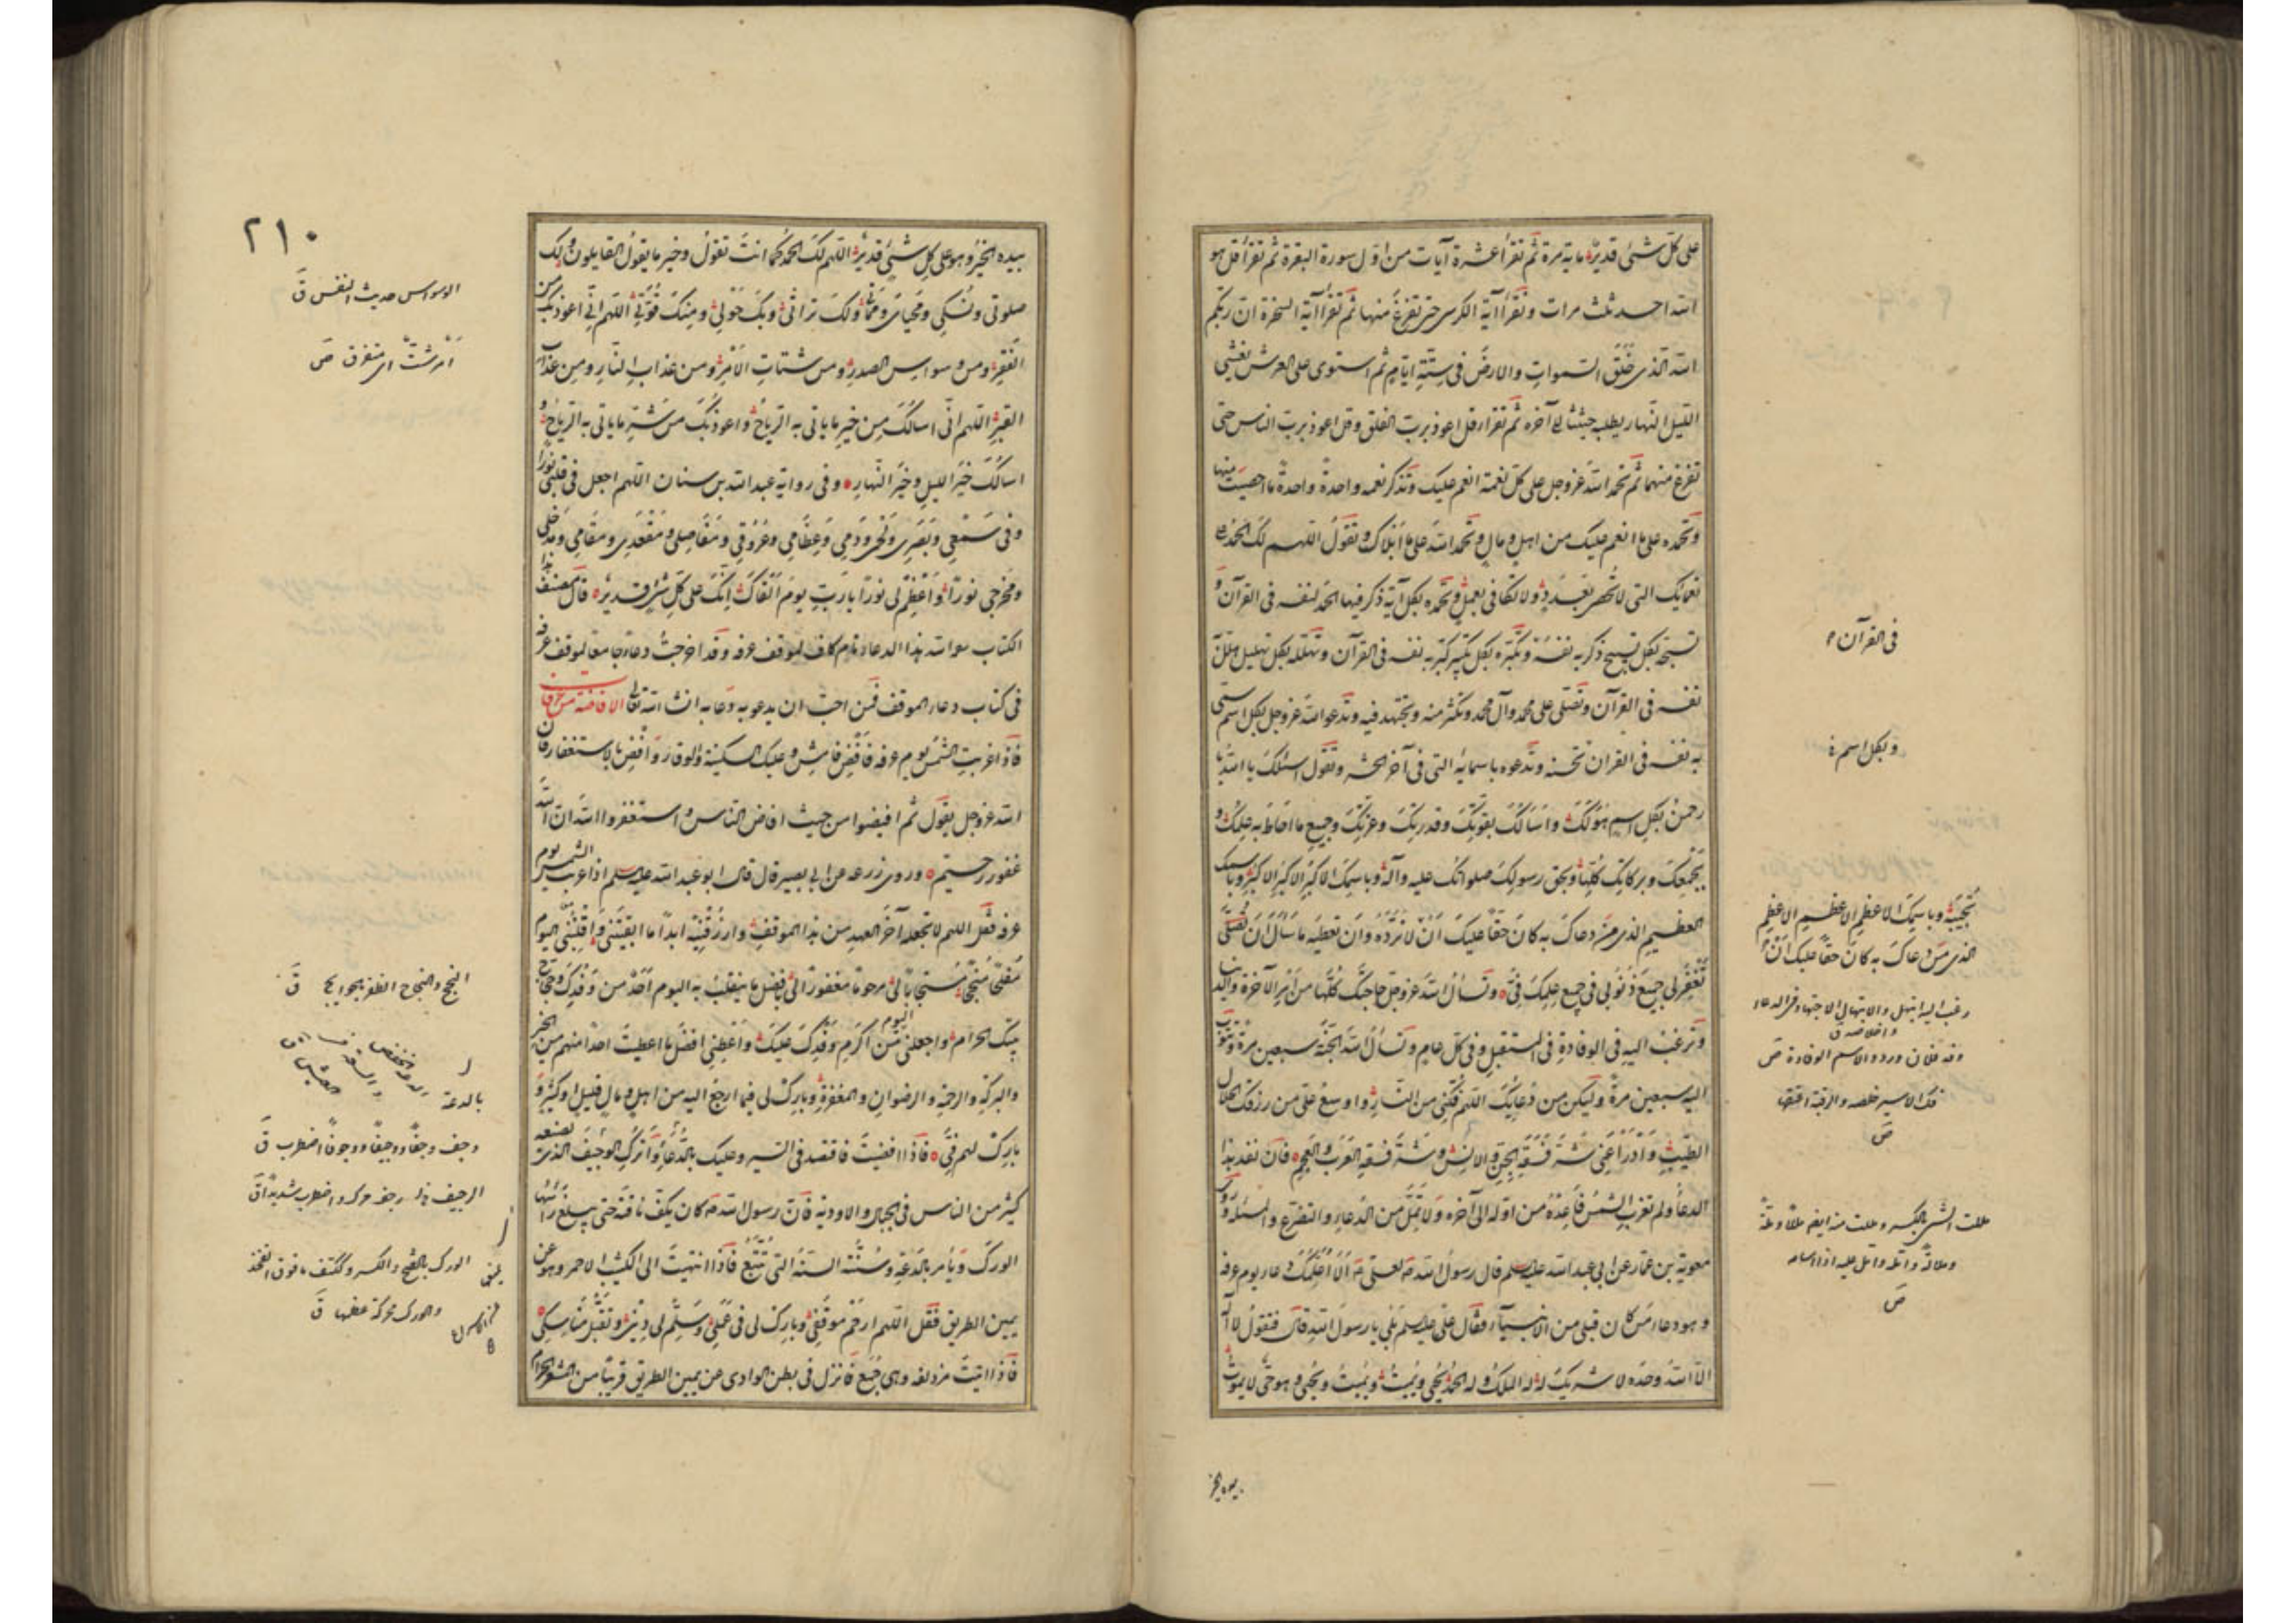 على كل شئ قدير ماية مرة ثم تقرأ عشرة آيات من اول سورة البقرة ثم تقرأ قل هو
الله احد ثلث مرات و تقرأ آية الكرسى حتى تفرغ منها ثم تقرأ آية السخرة ان ربكم
الله الذى خلق السموات والارض فى ستة ايام ثم استوى على العرش يغشى
الليل النهار يطلبه حثيثا الى آخره ثم تقرأ قل اعوذ برب الفلق و قل اعوذ برب الناس حتى
تفرغ منهما ثم تحمد الله عز وجل على كل نعمة انعم عليك و تذكر نعمه واحدة واحدة ما احصيت منها
و تحمده على ما انعم عليك من اهل و مال و تحمد الله على ما ابلاك و تقول اللهم لك الحمد على
نعمائك التى لا تحصى بعدد ولا تكافى بعمل و تحمده بكل آية ذكر فيها الحمد لنفسه فى القرآن و
تسبحه بكل تسبيح ذكر به نفسه و تكبره بكل تكبير كبر به نفسه فى القرآن و تهلله بكل تهليل هلل به
نفسه فى القرآن و تصلى على محمد وآل محمد و تكثر منه و تجتهد فيه و تدعو الله عز وجل بكل اسم سمى
به نفسه فى القران تحسنه و تدعوه باسمائه التى فى آخر الحشر و تقول اسئلك يا الله يا
رحمن بكل اسم هو لك و اسألك بقوتك و قدرتك و عزتك و جميع ما احاط به علمك و
بجمعك و بركانك كلها و بحق رسولك صلواتك عليه وآله و باسمك الاكبر الاكبر الاكبر و باسمك
العظيم الذى من دعاك به كان حقا عليك ان لا ترده و ان تعطيه ما سأل ان تصلى
تغفر لى جميع ذنوبى فى جميع علمك فى و تسأل الله عز وجل حاجتك كلها من امر الآخرة والدنيا
و ترغب اليه فى الوفادة فى المستقبل و فى كل عام و تسأل الله الجنة سبعين مرة و تتوب
اليه سبعين مرة و ليكن من دعائك اللهم فكنى من النار و اوسع على من رزقك الحلال
الطيب و ادرأ عنى شر فسقة الجن والانس و شر فسقة العرب والعجم فان نفد هذا
الدعا و لم تغرب الشمس فاعده من اوله الى آخره و لا تمل من الدعاء والتضرع والمسئلة و روى
معوية بن عمار عن ابى عبد الله عليه السلم قال قال رسول الله ص لعلى ع الا اعلمك دعاء يوم عرفة
و هو دعاء من كان قبلى من الانبيآء فقال على عليه السلم بلى يا رسول الله قال فتقول لا اله
الا الله وحده لا شريك له له الملك و له الحمد يحيى و يميت و يميت و يحيى و هو حى لا يموت
فى القرآن
و بكل اسم
تجيبه و باسمك الاعظم الاعظم الاعظم
الذى من دعاك به كان حقا عليك ان لا
رغب اليه ابتهل والابتهال الاجتهاد فى الدعاء
و اخلاصه ق
وفد فلان ورد والاسم الوفادة ص
فك الاسير خلصه والرقبة اعتقها
ص
مللت الشئ بالكسر و مللت منه ايضا مللا و ملة
و ملالة و امله و امل عليه اذا اسامه
ص
بيده الخير
٢١٠
بيده الخير و هو على كل شئ قدير اللهم لك الحمد كما انت تقول و خير ما يقول القايلون لك
صلوتى و نسكى و محياى و مماتى و لك تراثى و بك حولى و منك قوتى اللهم انى اعوذ بك من
الفقر و من وسواس الصدر و من شتات الامر و من عذاب النار و من عذاب
القبر اللهم انى اسالك من خير ما ياتى به الرياح و اعوذ بك من شر ما ياتى به الرياح و
اسالك خير الليل و خير النهار و فى رواية عبد الله بن سنان اللهم اجعل فى قلبى نورا
و فى سمعى و بصرى و لحمى و دمى و عظامى و عروقى و مفاصلى و مقعدى و مقامى و مدخلى
و مخرجى نورا و اعظم لى نورا يا رب يوم القاك انك على كل شئ قدير قال مصنف هذا
الكتاب هذا الدعاء تام كاف لموقف عرفة و قد اخرجت دعاء جامعا لموقف عرفة
فى كتاب دعاء الموقف فمن احب ان يدعو به دعا به انشاء الله تعالى الافاضة من عرفات
فاذا غربت الشمس يوم عرفة فامش و عليك السكينة والوقار و افض بالاستغفار فان
الله عز وجل يقول ثم افيضوا من حيث افاض الناس و استغفروا الله ان الله
غفور رحيم و روى زرعة عن ابى بصير قال قال ابو عبد الله عليه السلم اذا غربت الشمس يوم
عرفة فقل اللهم لا تجعله آخر العهد من هذا الموقف و ارزقنيه ابدا ما ابقيتنى و اقلبنى اليوم
مفلحا منجحا مستجابا لى مرحوما مغفورا لى بافضل ما ينقلب به اليوم احد من وفدك و حجاج
بيتك الحرام و اجعلنى اليوم من اكرم وفدك عليك و اعطنى افضل ما اعطيت احدا منهم من الخير
والبركة والرحمة والرضوان والمغفرة و بارك لى فيما ارجع اليه من اهل و مال قليل او كثير و
بارك لهم فى فاذا افضت فاقتصد فى السير و عليك بالدعة و اترك الوجيف الذى يصنعه
كثير من الناس فى الجبال والاودية فان رسول الله ص كان يكف ناقته حتى يبلغ رأسها
الورك و يأمر بالدعة و سنته السنة التى تتبع فاذا انتهيت الى الكثيب الاحمر و هو عن
يمين الطريق فقل اللهم ارحم موقفى و بارك لى فى عملى و سلم لى دينى و تقبل مناسكى
فاذا اتيت مزدلفة و هى جمع فانزل فى بطن الوادى عن يمين الطريق قريبا من المشعر الحرام
الوسواس حديث النفس ق
امر شت اى متفرق ص
النجح والنجاح الظفر بالحوايج ق
بالدعة
وجف وجفا و وجيفا و وجوفا اضطرب ق
الرجيف رجف حرك و اضطرب شديدا ق
الورك بالفتح والكسر و ككتف ما فوق الفخذ
والورك محركة عظمها ق